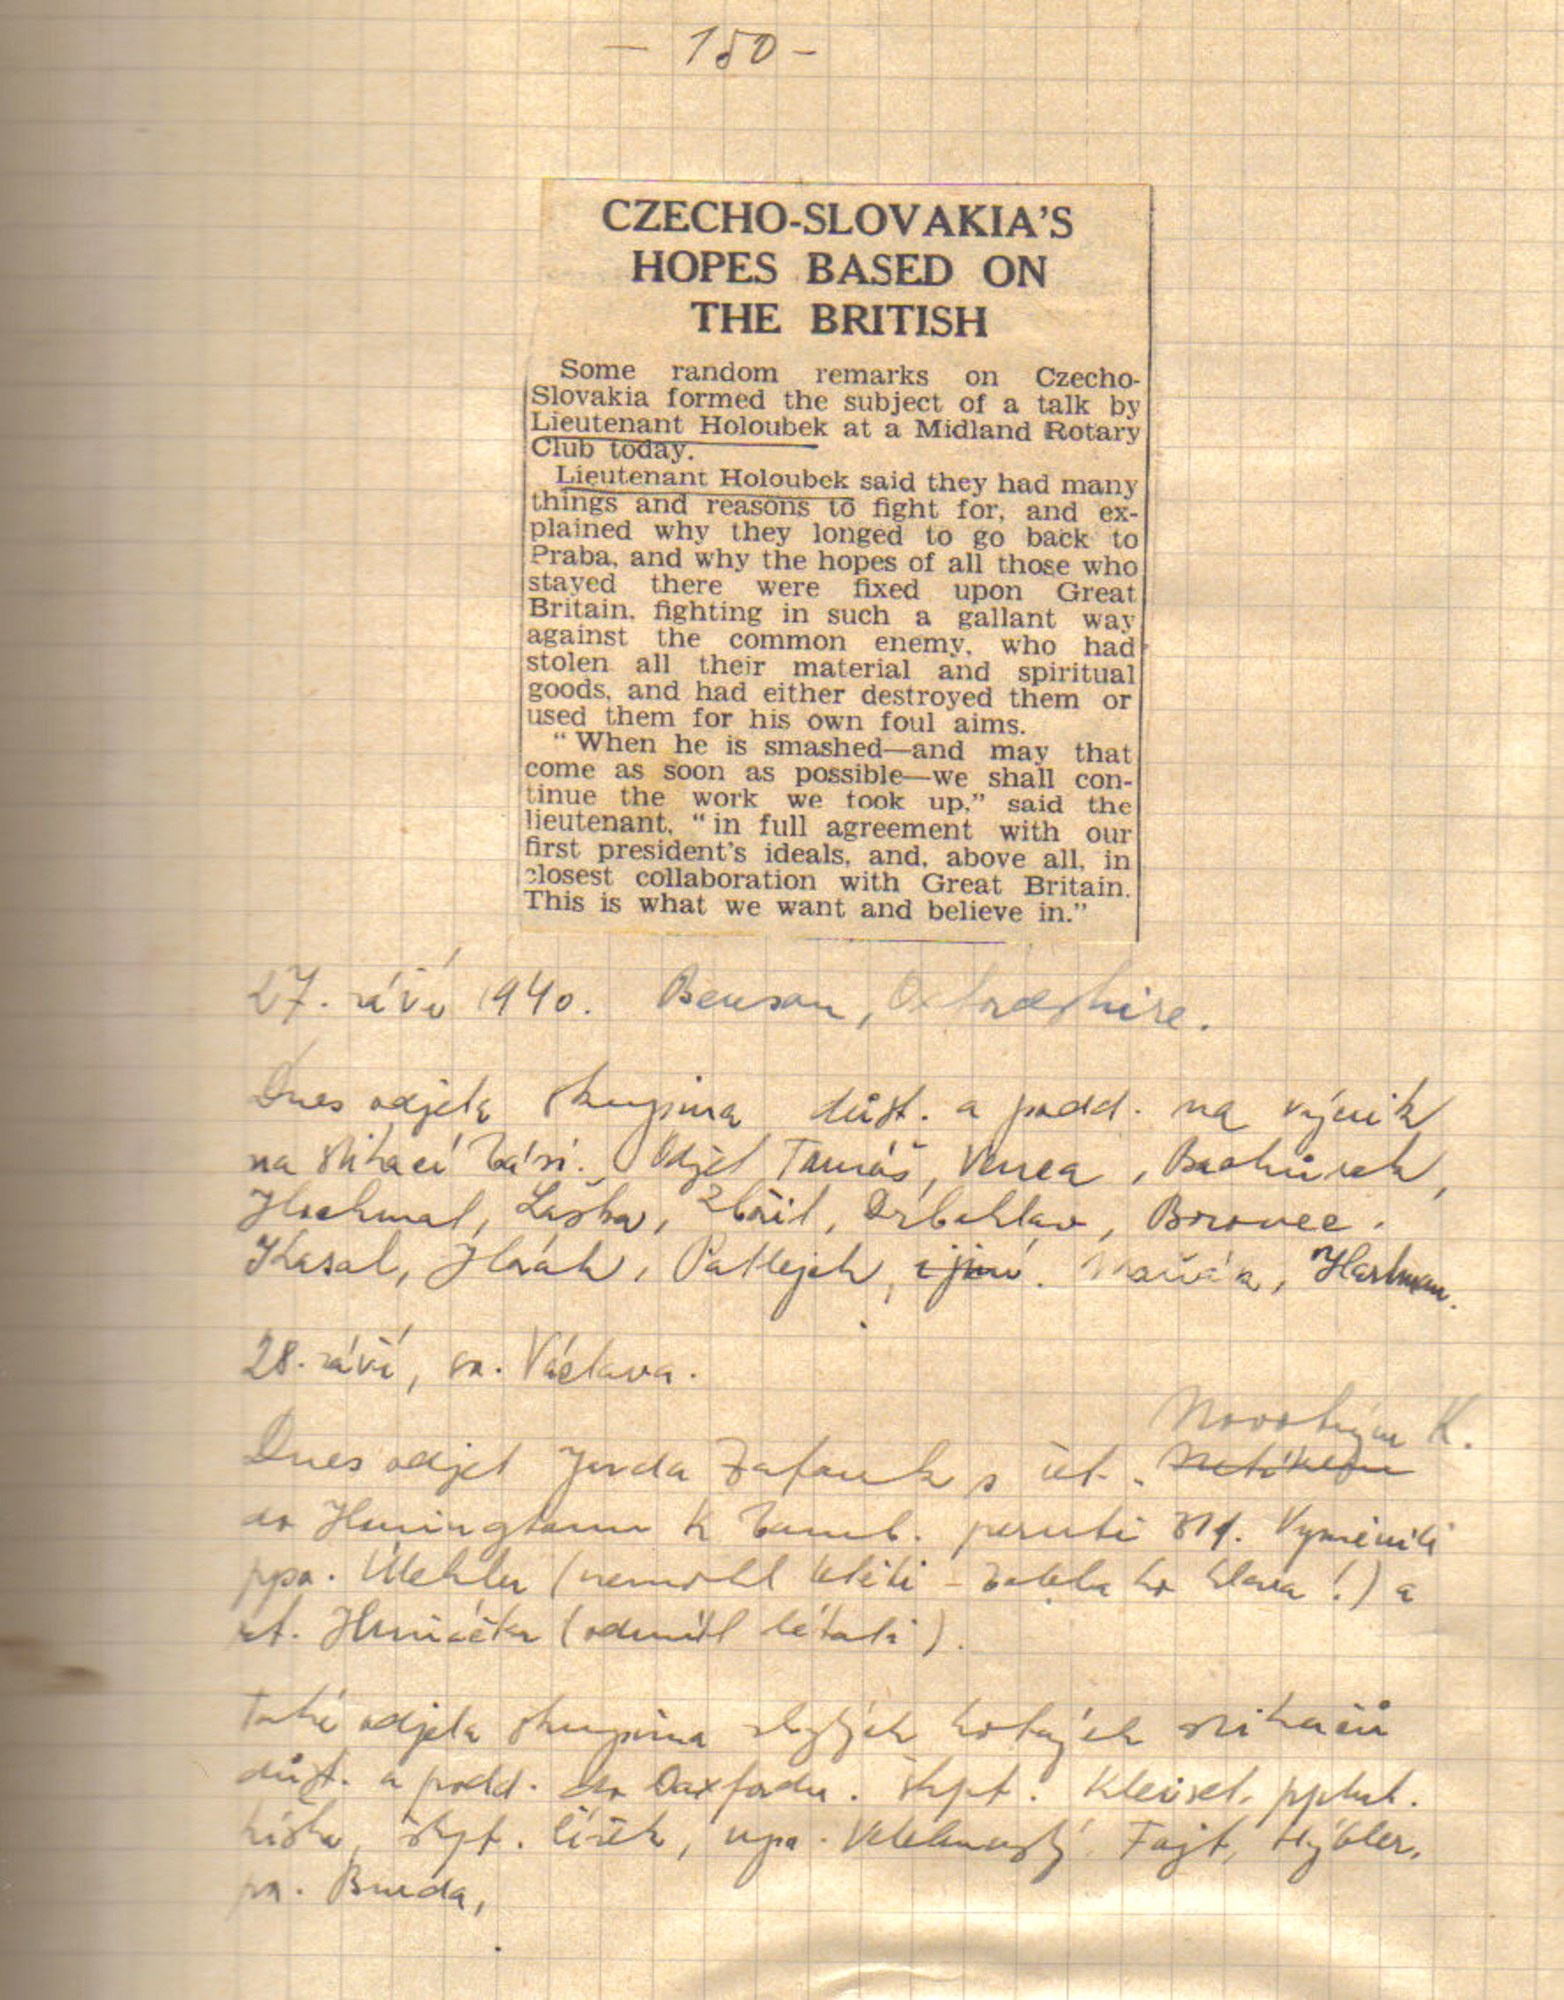 - 150 -
CZECHO-SLOVAKIA'S
HOPES BASED ON
THE BRITISH
Some random remarks on Czecho-
Slovakia formed the subject of a talk by
Lieutenant Holoubek at a Midland Rotary
Club today.
Lieutenant Holoubek said they had many
things and reasons to fight for, and ex-
plained why they longed to go back to
Praba, and why the hopes of all those who
stayed there were fixed upon Great
Britain, fighting in such a gallant way
against the common enemy, who had
stolen all their material and spiritual
goods, and had either destroyed them or
used them for his own foul aims.
"When he is smashed—and may that
come as soon as possible—we shall con-
tinue the work we took up," said the
lieutenant, "in full agreement with our
first president's ideals, and, above all, in
closest collaboration with Great Britain.
This is what we want and believe in."
27. září 1940. Benson, Oxfordshire.
Dnes odjela skupina důst. a podd. na výcvik
na stíhací bázi. Odjel Tomáš, Venca,
Hochmal, Laška, Zbořil, Drbohlav, Borovec.
Kasal, Horák, Patlejch, i jiní. Maňák, Hartman.
28. září, sv. Václava.
Novotným K.
Dnes odjel Jarda Zafouk s
do Honingtonu k bomb. peruti 311. Vyměnili
(nemohl létati - bolela ho hlava!) a
(odmítl létati).
Také odjela skupina zbylých stíhačů
důst. a podd. do Duxfordu. škpt.
škpt. Čížek, Fajt, Hýbler,
Burda,